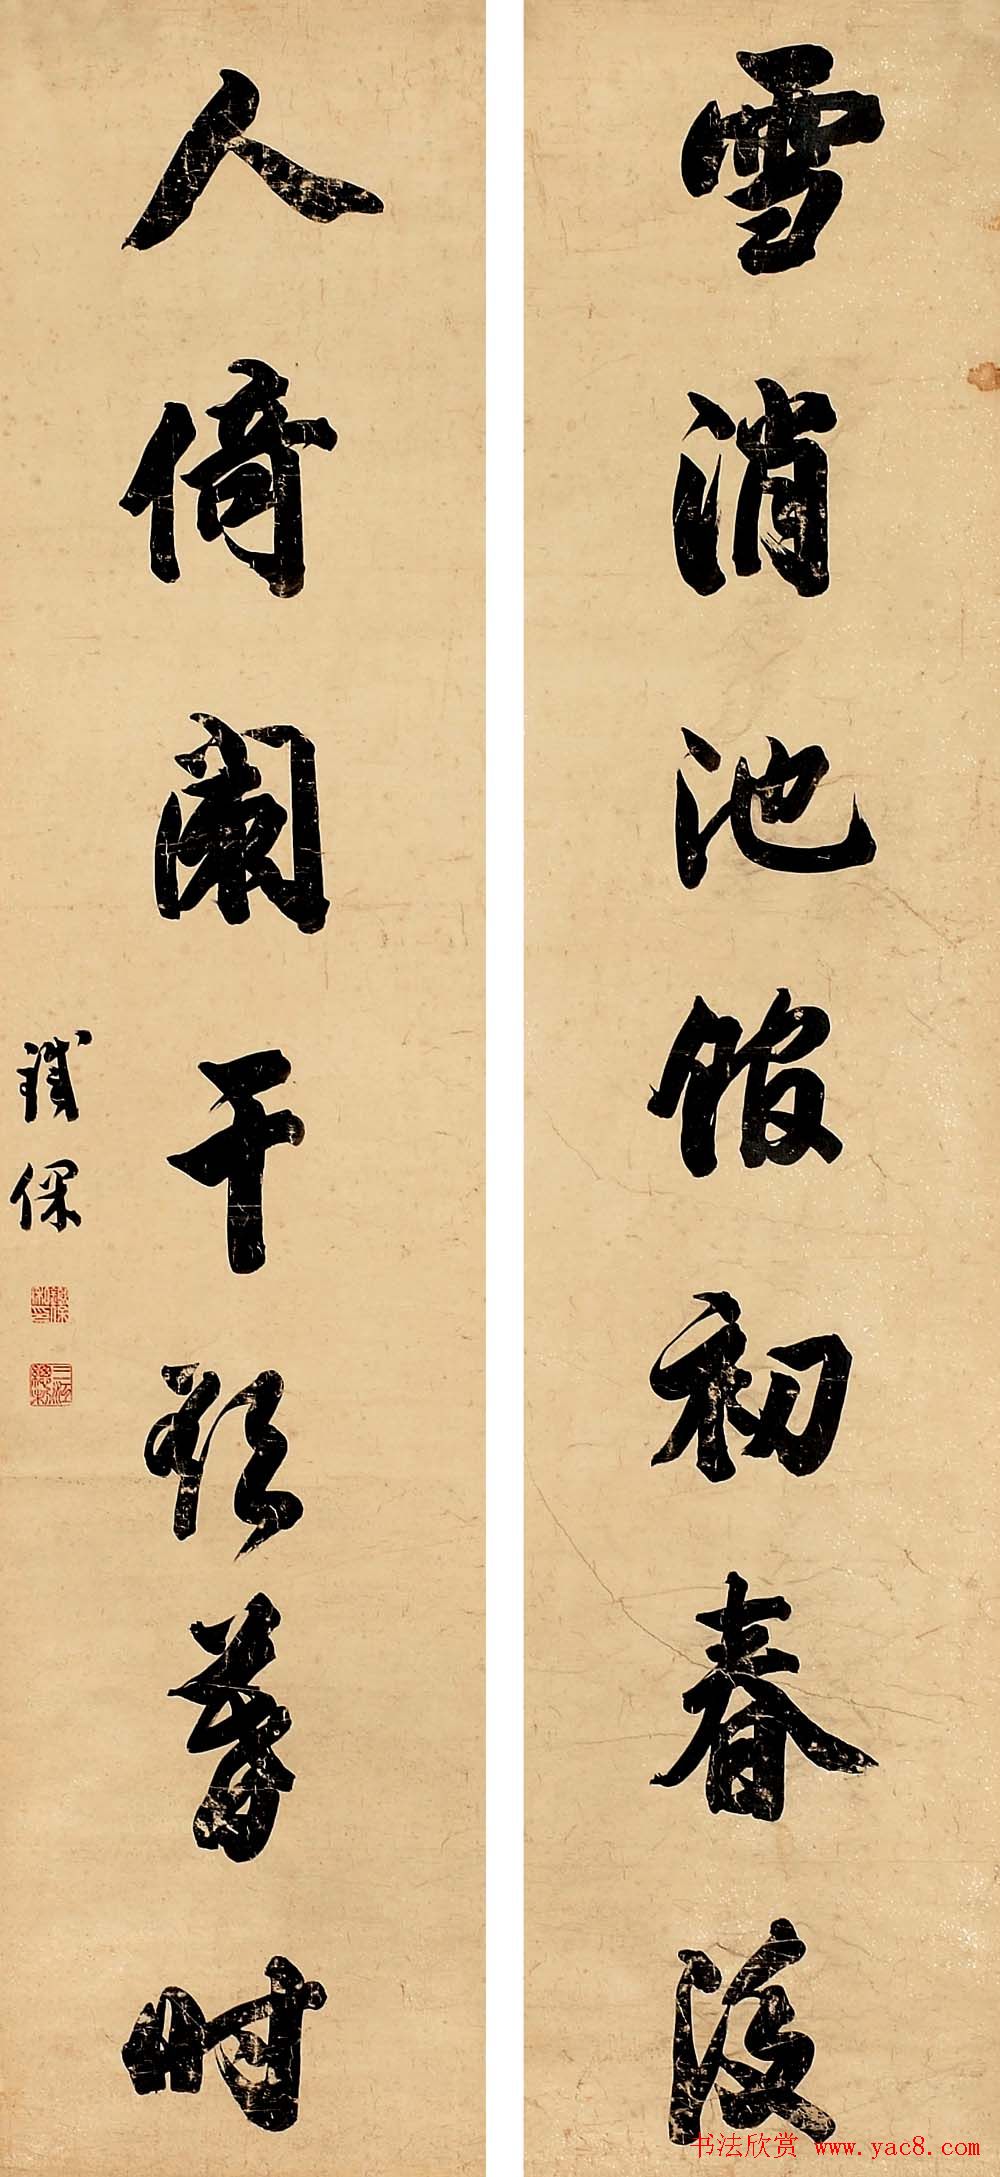 雪消池館初春後
人倚闌干欲暮時
鐵保
三江總制
书法欣赏 www.yac8.com